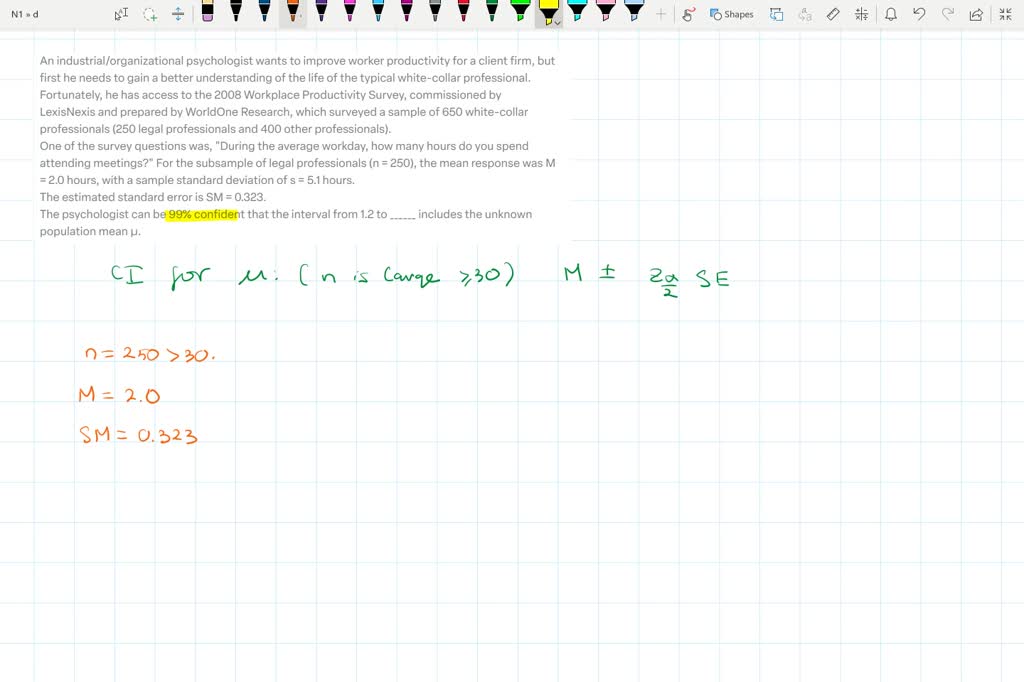 N1 » d
Shapes
An industrial/organizational psychologist wants to improve worker productivity for a client firm, but
first he needs to gain a better understanding of the life of the typical white-collar professional.
Fortunately, he has access to the 2008 Workplace Productivity Survey, commissioned by
LexisNexis and prepared by WorldOne Research, which surveyed a sample of 650 white-collar
professionals (250 legal professionals and 400 other professionals).
One of the survey questions was, "During the average workday, how many hours do you spend
attending meetings?" For the subsample of legal professionals (n = 250), the mean response was M
= 2.0 hours, with a sample standard deviation of s = 5.1 hours.
The estimated standard error is SM = 0.323.
The psychologist can be 99% confident that the interval from 1.2 to ______ includes the unknown
population mean μ.
CI for μ: (n is large ≥30) M ± Zα/2 SE
n = 250 > 30.
M = 2.0
SM = 0.323